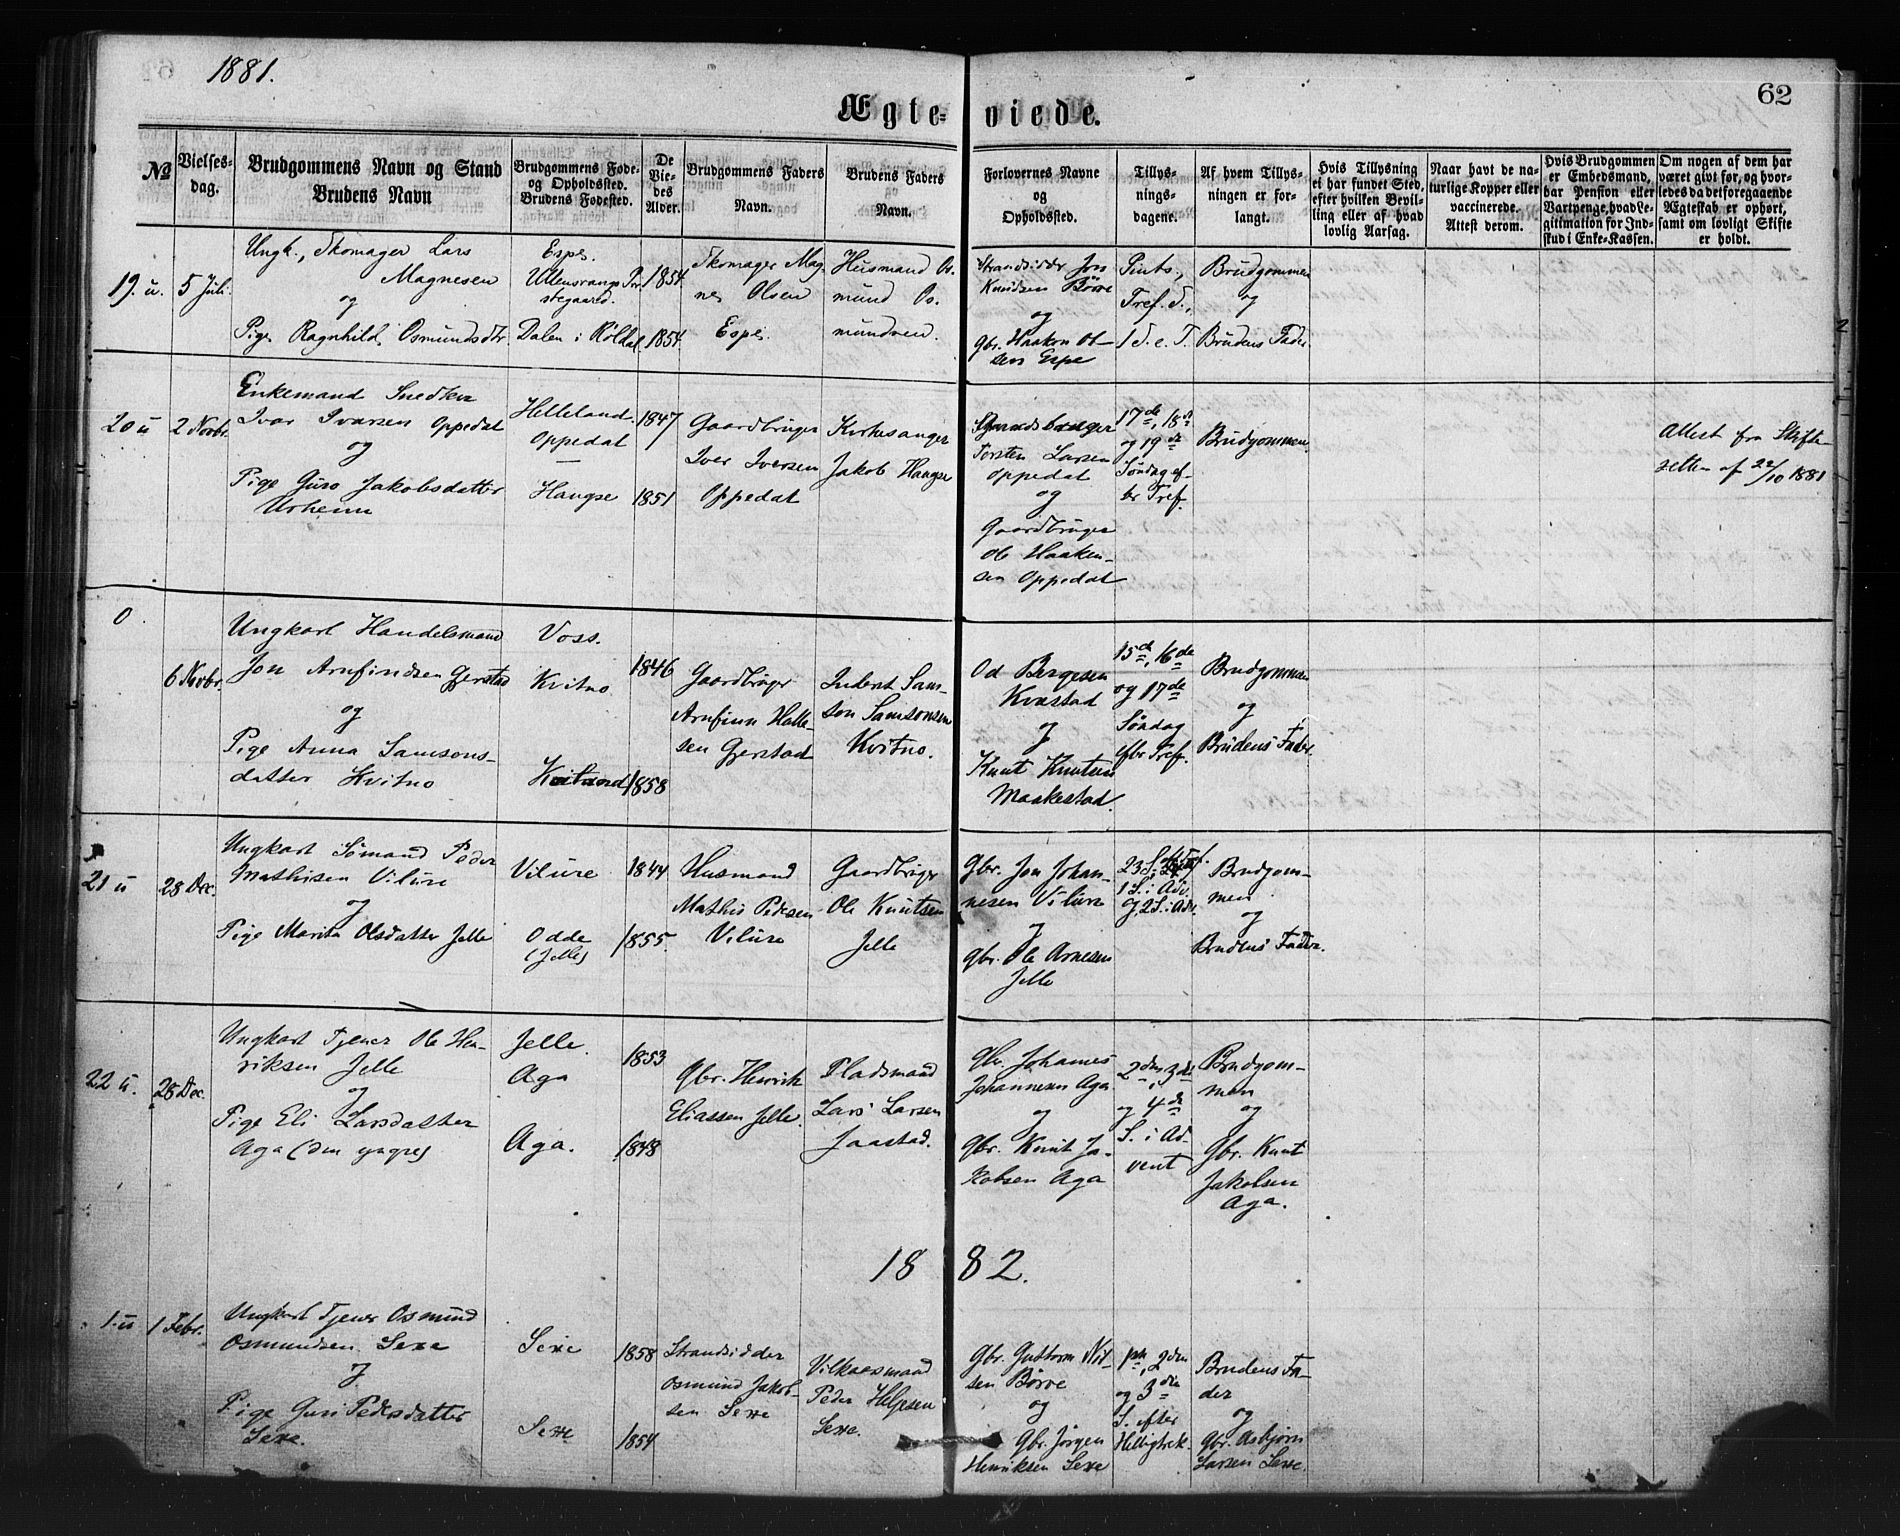 1881.
62
Ægteviede.
№
Vielses-
dag.
Brudgommens Navn og Stand
Brudens Navn
Brudgommens Føde-
og Opholdssted.
Brudens Fødested.
De
Vie-
des
Alder.
Brudgommens Faders
Navn.
Brudens Faders
Navn.
Forlovernes Navne
og
Opholdssted.
Tillys-
nings-
dagene.
Af hvem Tillys-
ningen er for-
langt.
Hvis Tillysning
ei har fundet Sted,
efter hvilken Bevil-
ling eller af hvad
lovlig Aarsag.
Naar havt de na-
turlige Kopper eller
vaccinerede.
Attest derom.
Hvis Brudgommen
er Embedsmand,
har Pension eller
Vartpenge, hvad Le-
gitimation for Ind-
skud i Enke-Kassen.
Om nogen af dem har
været givt før, og hvor-
ledes da det foregaaende
Ægteskab er ophørt,
samt om lovligt Skifte
er holdt.
19. u.
5 Juli.
Ungk., Skomager Lars
Magnesen
og
Pige Ragnhild Osmundsdtr
Espe.
Ullensvangs Præ-
stegaard.
Dalen i Röldal
1854
1854
Skomager Mag-
nes Olsen
Espe.
Husmand Os-
mund Os-
mundsen.
Strandsidder Jon
Knudsen Börve
og
Gbr. Haakon Ol-
sen Espe
Pints.,
Tref. S.,
1 S. e. T.
Brudgommen
og
Brudens Fader
20 u
2 Novbr.
Enkemand Snedker
Ivar Ivarsen Oppedal
og
Pige Guro Jakobsdatter
Urheim
Helleland
Oppedal
Hangse
1847
1851
Gaardbruger
Iver Iversen
Oppedal
Kirkesanger
Jakob Hangse
Torsten Larsen
Oppedal
og
Gaardbruger
Ole Haaken-
sen Oppedal
17de, 18de
og 19de
Søndag ef-
ter Tref.
Brudgommen
Attest fra Skifte-
retten af 22/10 1881
0.
6 Novbr.
Ungkarl Handelsmand
Jon Arnfindsen Gjerstad
og
Pige Anna Samsons-
datter Kvitno
Voss.
Kvitno
1846
1858
Gaardbruger
Arnfinn Halle-
sen Gjerstad
Inderst Sam-
son Samsonsen
Kvitno.
Od Bergesen
Kvestad
og
Knut Knutsen
Maakestad.
15de, 16de
og 17de
Søndag
efter Tref.
Brudgommen
og
Brudens Fader.
21 u
28 Dec.
Ungkarl Sömand Peder
Mathisen Vilure
og
Pige Marita Olsdatter Jelle
Vilure
Odde
(Jelle)
1844
1855.
Husmand
Mathis Pedersen
Vilure
Gaardbruger
Ole Knutsen
Jelle
Gbr. Jon Johan-
nesen Vilure
og
Gbr. Ole Arnesen
Jelle
23 S. e. Tref.
1 S. i Adv.
og 2 S. i Adv.
Brudgom-
men
og
Brudens Fader.
22 u.
28 Dec.
Ungkarl Tjener Ole Hen-
riksen Jelle
og
Pige Eli Larsdatter
Aga (den yngre)
Jelle.
Aga
Aga.
1853
1848
Gbr. Henrik
Eliassen Jelle.
Pladsmand
Lars Larsen
Jaastad.
Gbr. Johannes
Johannesen Aga
og
Gbr. Knut Ja-
kobsen Aga
2den, 3die
og 4de
S. i Ad-
vent
Brudgom-
men
og
Gbr. Knut
Jakobsen
Aga.
1882.
1. u
1 Febr.
Ungkarl Tjener Osmund
Osmundsen Sexe
og
Pige Guri Pedersdatter
Sexe.
Sexe
Sexe
1858
1854
Strandsidder
Osmund Jakob-
sen Sexe
Vilkaarsmand
Peder Helgesen
Sexe.
Gbr. Guttorm Nil-
sen Börve
og
Gbr. Jörgen
Henriksen Sexe
2den
og 3die
S. efter
Helligtrek.
Brudens Fa-
der
og
Gbr. Asbjörn
Larsen Sexe.